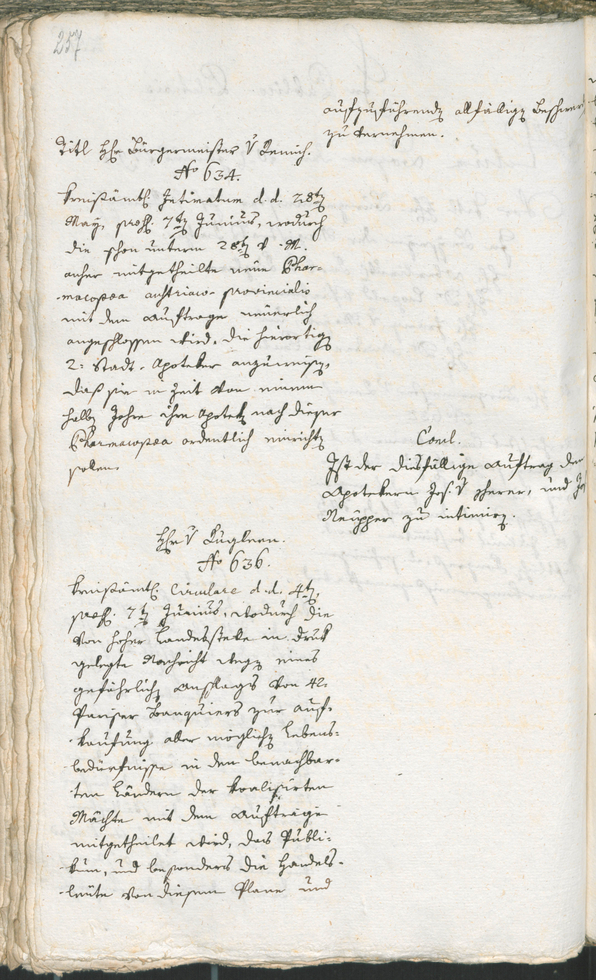 257
aufzuführende allfällige Beschwer
zu vernehmen.
Titl Hr Bürgermeister v Remich.
No 634.
Kreisämtl. Intimatum d. d. 28t
May, pross. 7t Junius, wodurch
die schon unterm 28t v. M.
anher mitgetheilte neüe Phar-
macopea austriaco-provincialis
mit dem Auftrage neüerlich
angeschlossen wird, die hierortige
2: Stadt-Apoteker anzuweisen,
daß sie in Zeit von einem
halben Jahre ihre Apotek nach dieser
Pharmacopea ordentlich einrichten
sollen.
Concl.
Ist der diesfällige Auftrag den
Apotekern Jos. v Scherer, und
zu intimiren.
Hr v
No 636.
Kreisämtl. Circulare d. d. 4t,
pross. 7t Junius, wodurch die
von hoher Landesstelle in Druk
gelegte Nachricht wegen eines
gefährlichen Anschlags von 42-
Pariser Banquiers zur auf-
kaufung aller möglichen Lebens-
bedürfnisse in den benachbar-
ten Ländern der koalisirten
Mächte mit dem Auftrage
mitgetheilet wird, das Publi-
kum, und besonders die Handels-
leüte von diesem Plane und